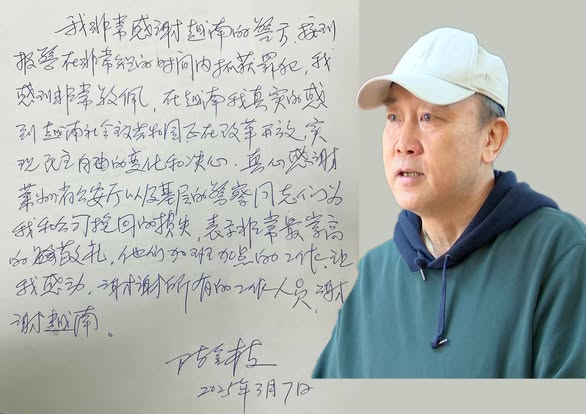 我非常感谢越南的警方,接到
报警在非常短的时间内抓获罪犯,我
感到非常敬佩,在越南我真实的感
到越南社会主义共和国正在改革开放,实
现民主自由的变化和决心。真心感谢
莱州省公安厅以及基层的警察同志们为
我和公司挽回的损失,表示非常最崇高
的敬礼,他们加班加点的工作,让
我感动,谢谢所有的工作人员,谢
谢越南。
2025年3月7日